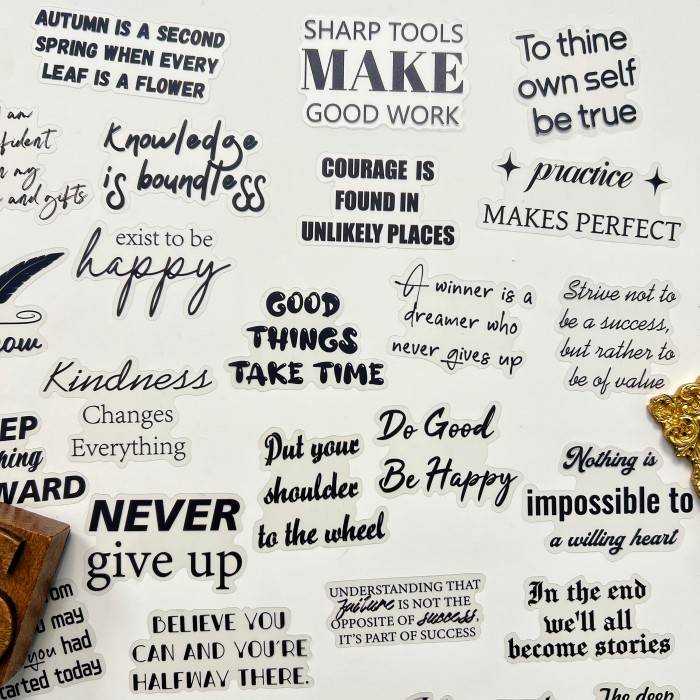 AUTUMN IS A SECOND
SPRING WHEN EVERY
LEAF IS A FLOWER
SHARP TOOLS
MAKE
GOOD WORK
To thine
own self
be true
am
my
and gifts
Knowledge
is boundless
COURAGE IS
FOUND IN
UNLIKELY PLACES
practice
MAKES PERFECT
exist to be
happy
GOOD
THINGS
TAKE TIME
A winner is a
dreamer who
never gives up
Strive not to
be a success,
but rather to
be of value
Kindness
Changes
Everything
Put your
shoulder
to the wheel
Do Good
Be Happy
Nothing is
impossible to
a willing heart
NEVER
give up
may
you had
started today
BELIEVE YOU
CAN AND YOU'RE
HALFWAY THERE.
UNDERSTANDING THAT
failure IS NOT THE
OPPOSITE OF success,
IT'S PART OF SUCCESS
In the end
we'll all
become stories
The deep